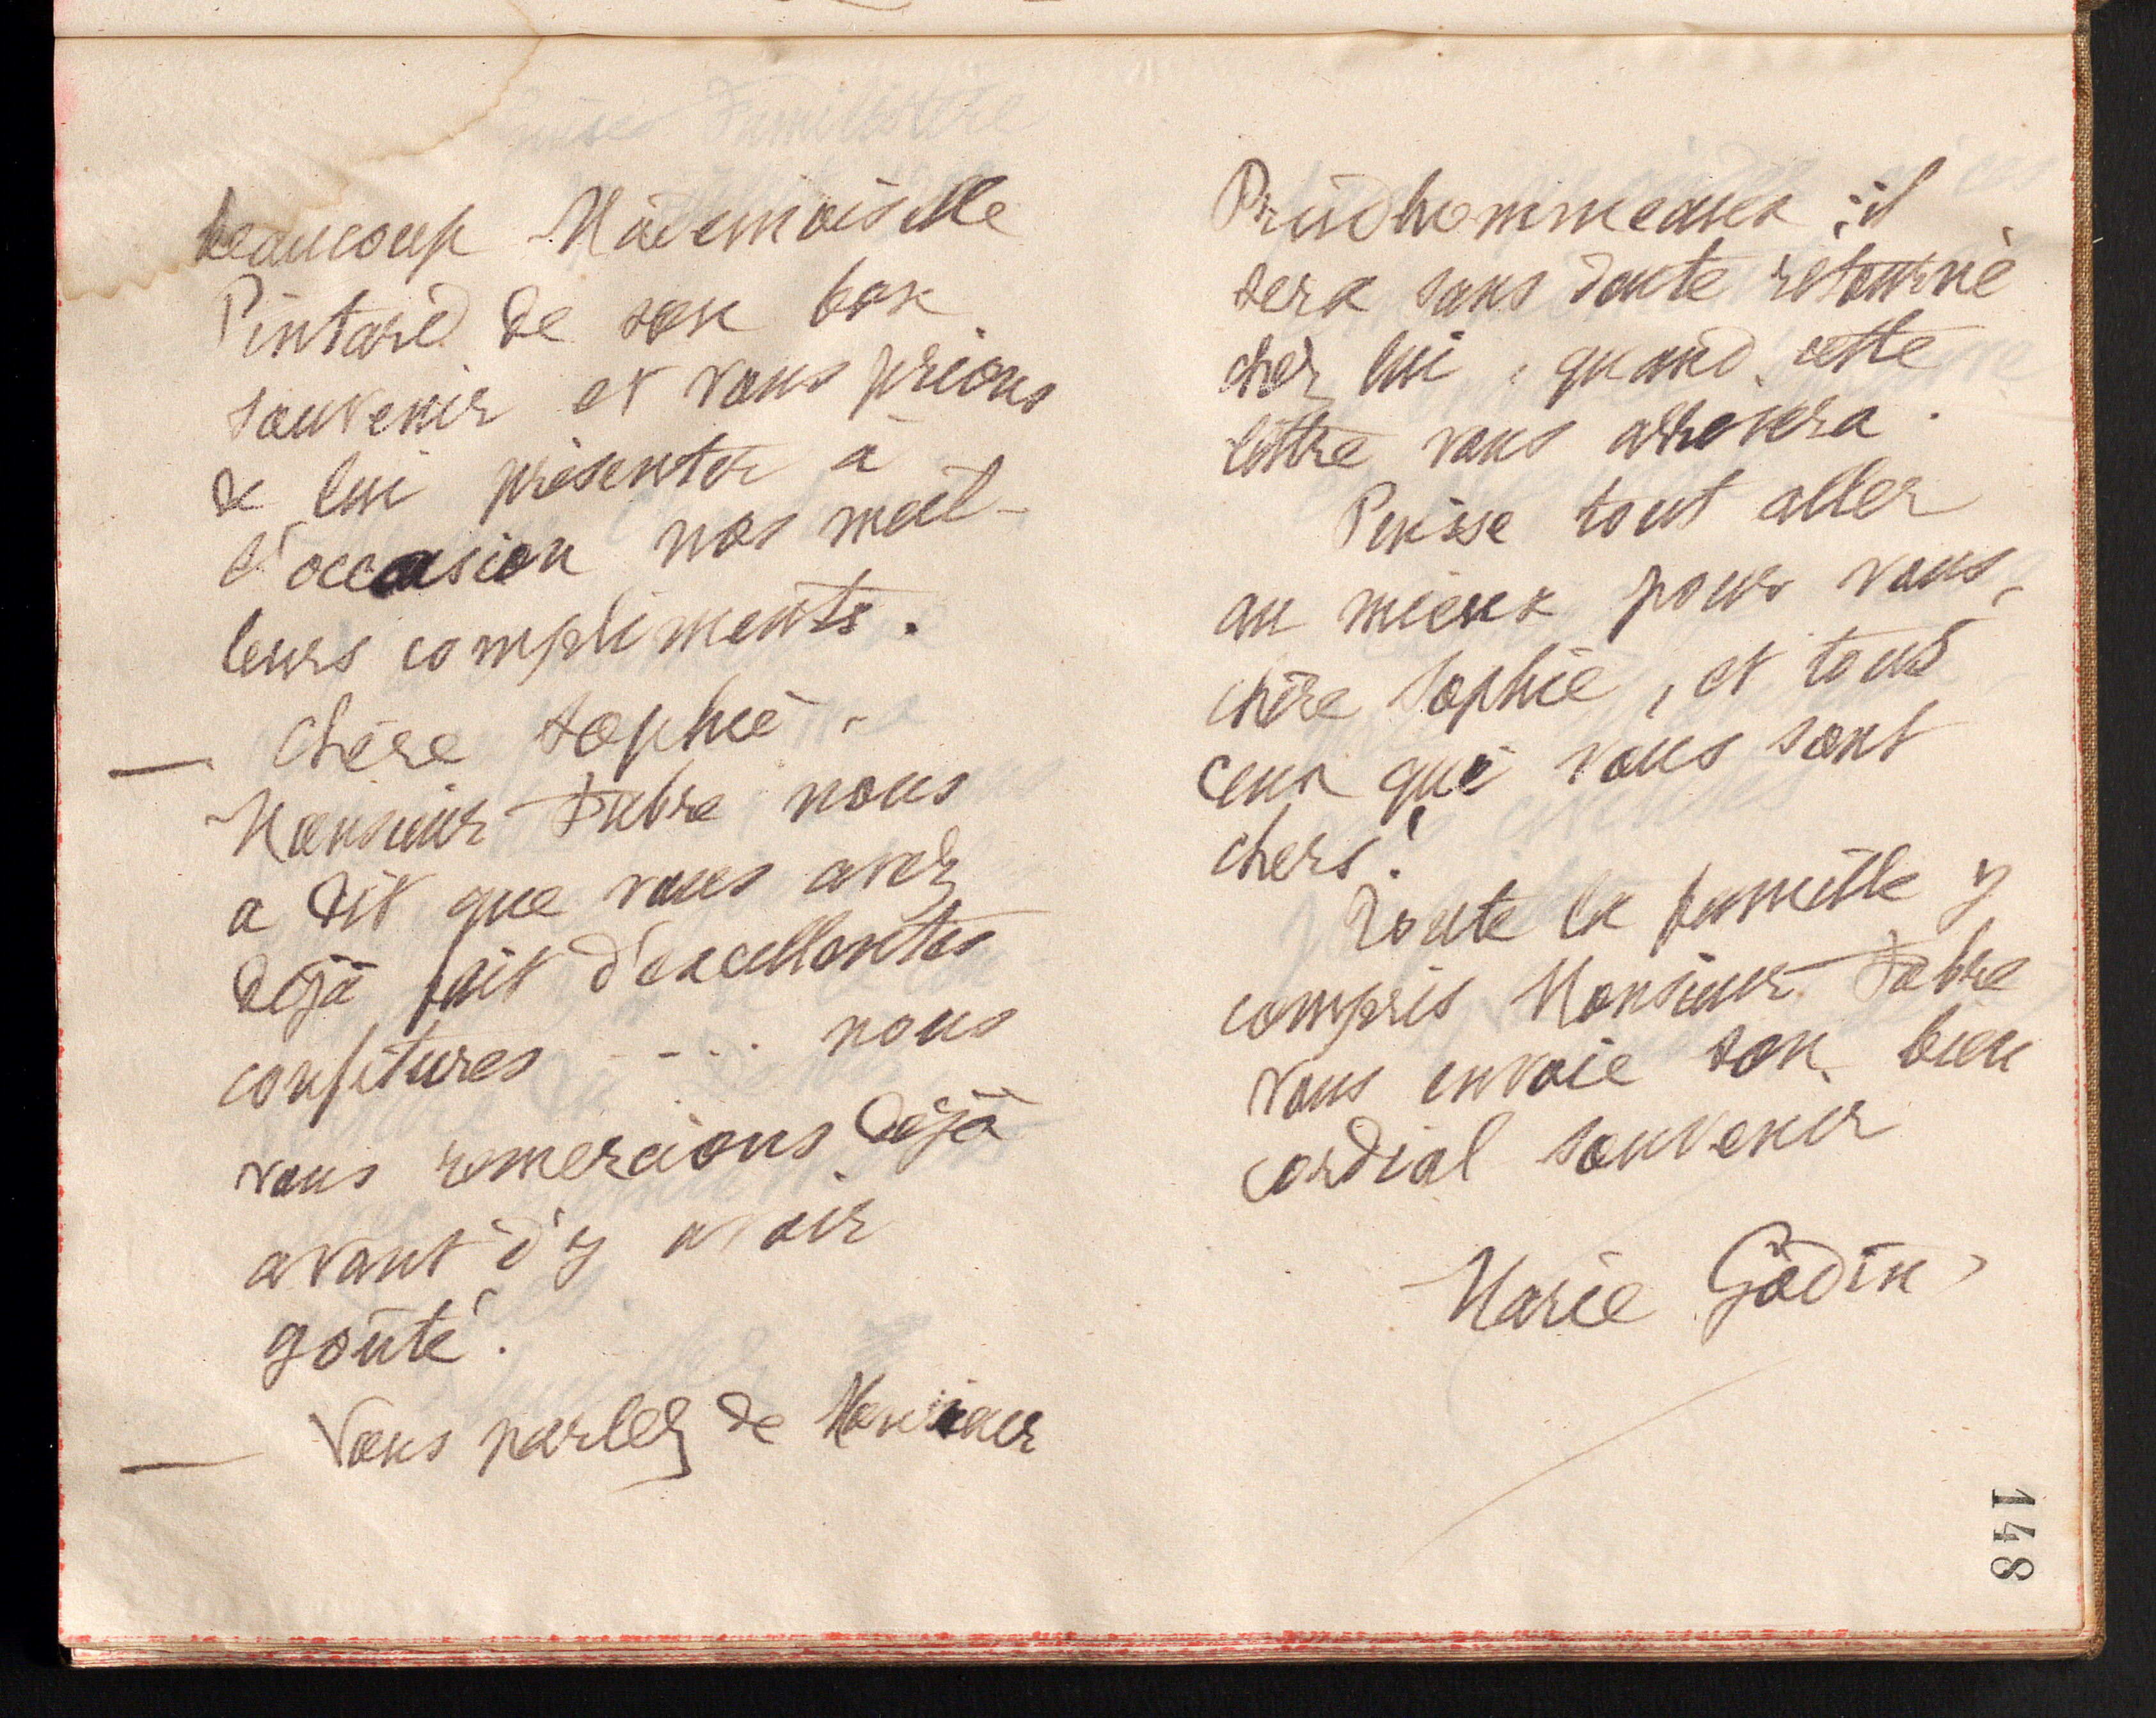 beaucoup Mademoiselle
Pintard de son bon
souvenir et vous prions
de lui présenter à
l'occasion nos meil-
leurs compliments.
— Chère Sophie,
Monsieur Fabre nous
a dit que vous avez
déjà fait d'excellentes
confitures .... nous
vous remercions déjà
avant d'y avoir
goûté.
— Vous parlez de Monsieur
Prudhommeaux ; il
sera sans doute retourné
chez lui, quand cette
lettre vous arrivera.
Puisse tout aller
au mieux pour vous,
chère Sophie, et tous
ceux qui vous sont
chers!
Toute la famille y
compris Monsieur Fabre
vous envoie son bien
cordial souvenir
Marie Godin
148